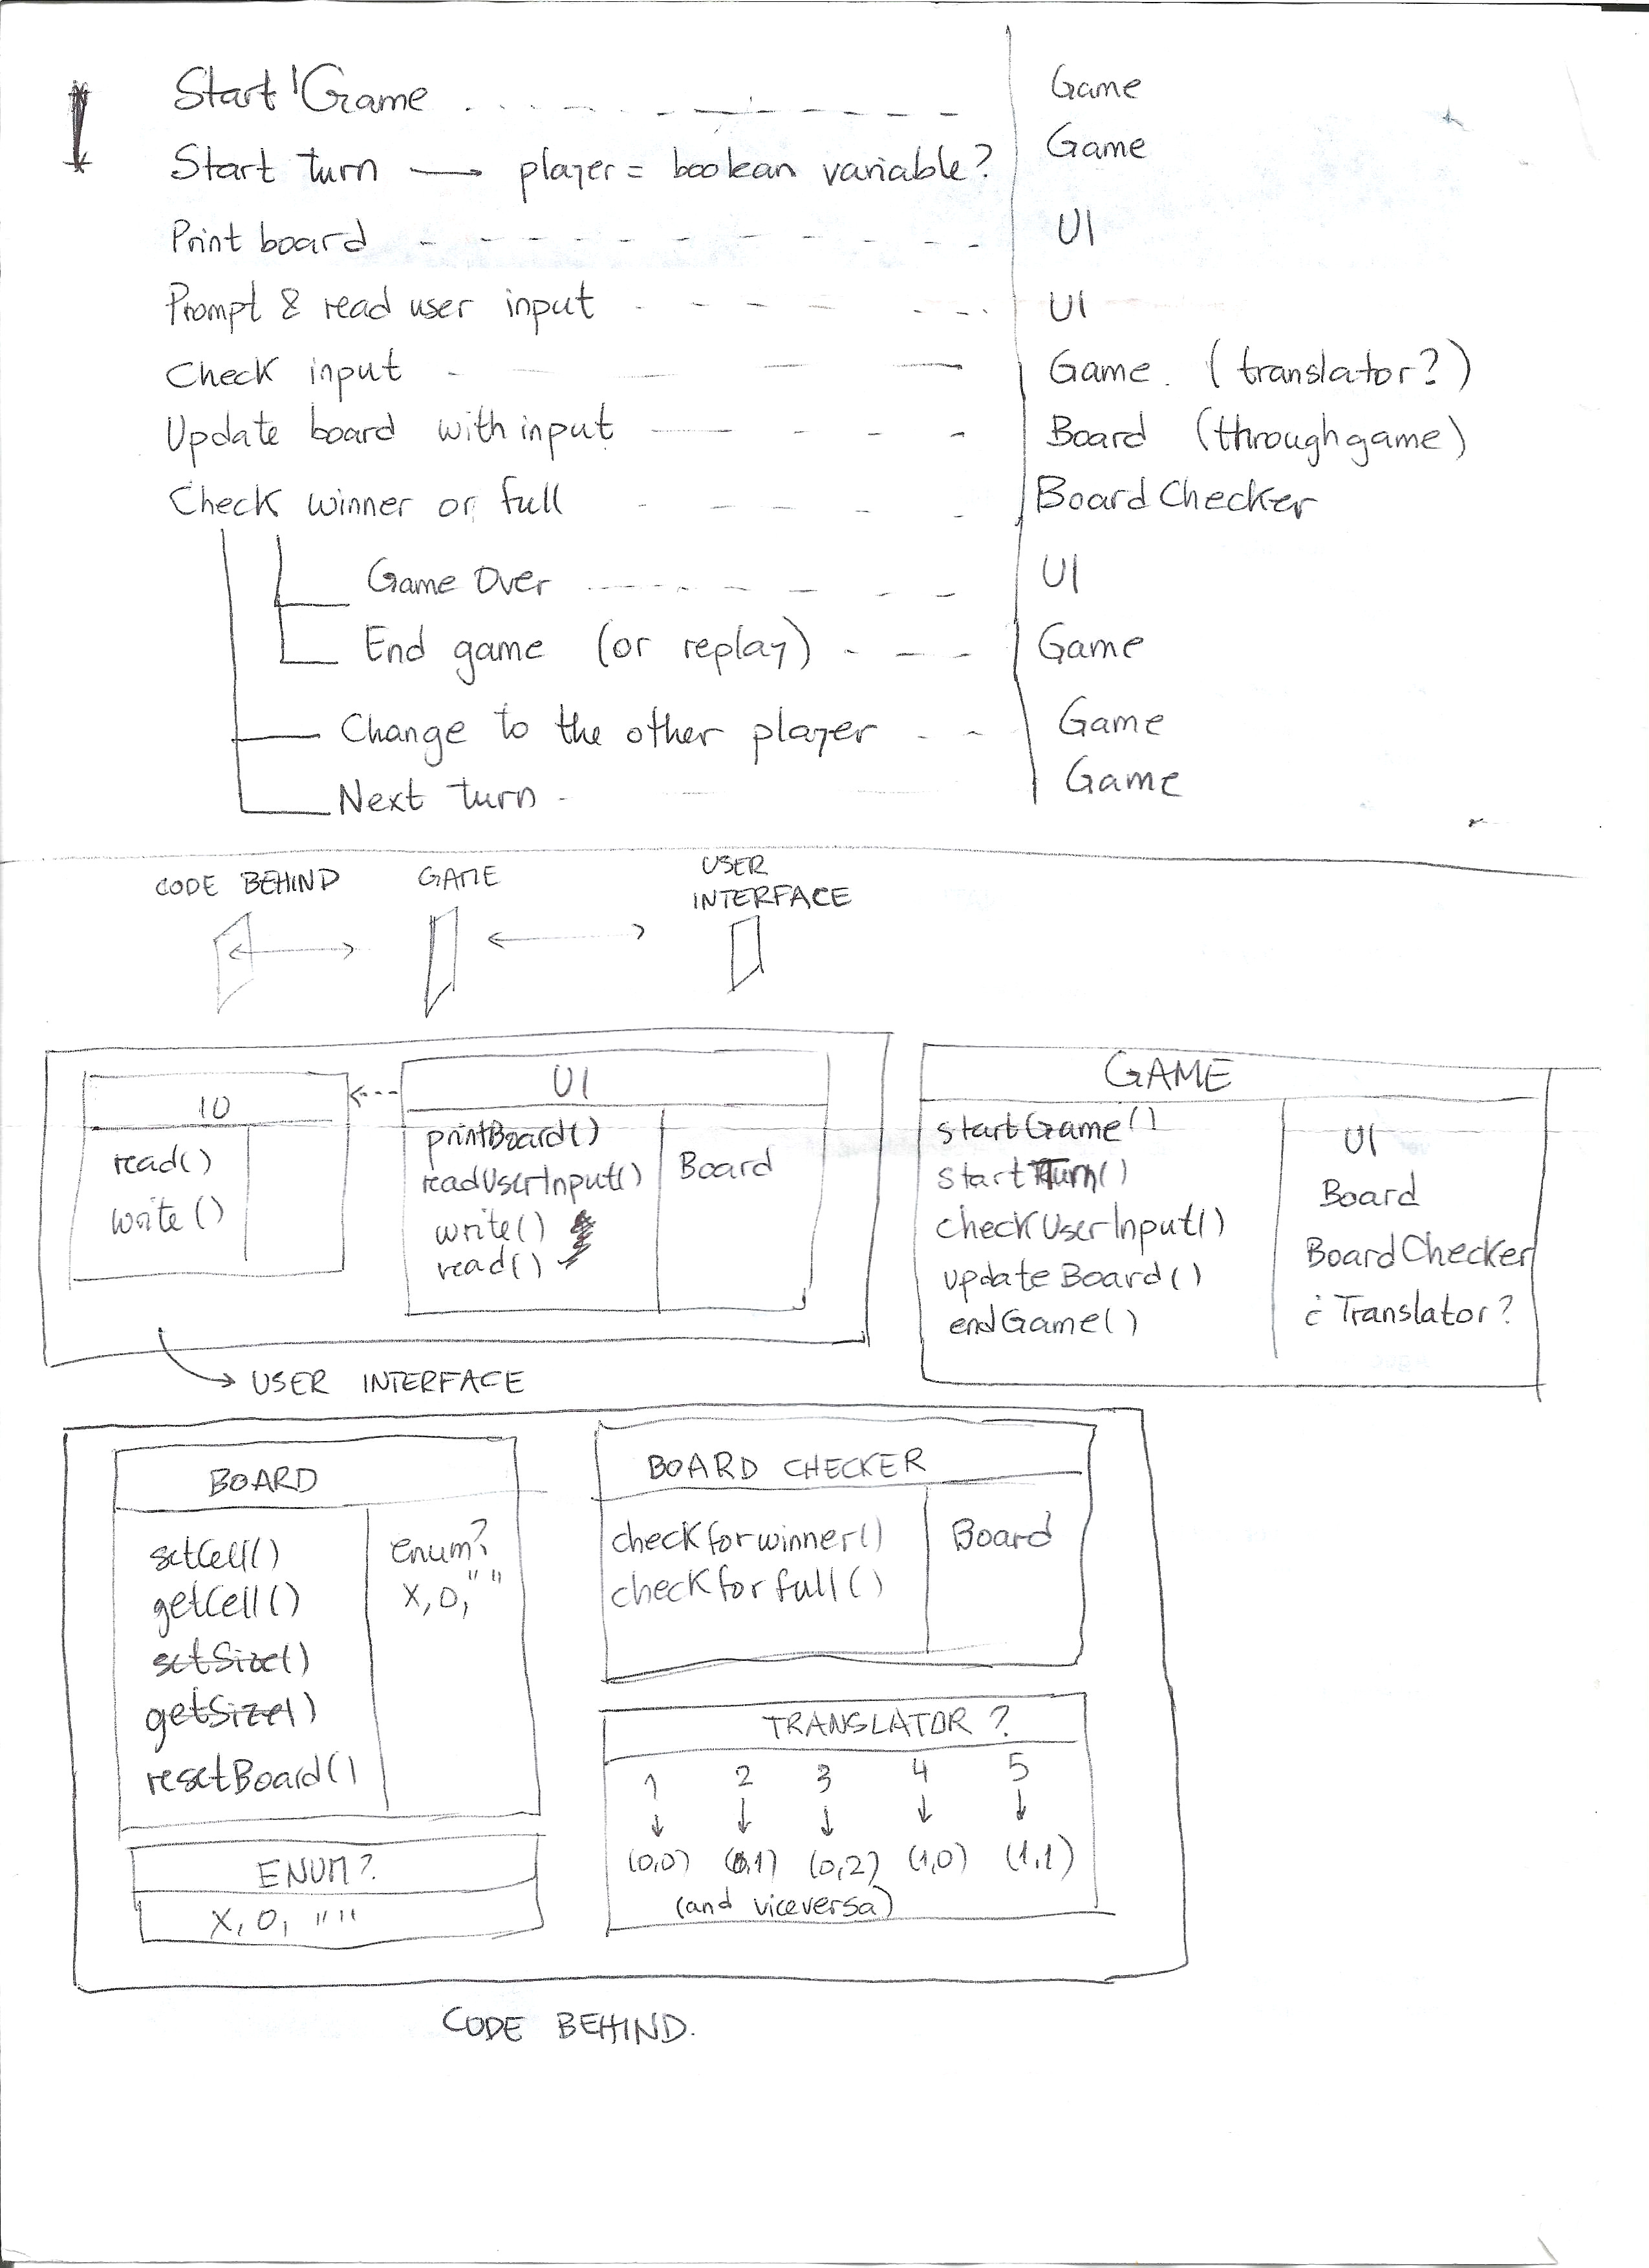 Start Game Game
Start turn → player = boolean variable? Game
Print board UI
Prompt & read user input UI
Check input Game. (translator?)
Update board with input Board (through game)
Check winner or full Board Checker
Game Over UI
End game (or replay) Game
Change to the other player Game
Next turn Game
CODE BEHIND GAME USER
INTERFACE
IO
read()
write()
UI
printBoard()
readUserInput()
write()
read()
Board
USER INTERFACE
GAME
startGame()
startTurn()
checkUserInput()
updateBoard()
endGame()
UI
Board
BoardChecker
¿Translator?
BOARD
setCell()
getCell()
setSize()
getSize()
resetBoard()
enum?
X, O, " "
ENUM?
X, O, " "
BOARD CHECKER
checkforwinner()
checkforfull()
Board
TRANSLATOR?
1 2 3 4 5
↓ ↓ ↓ ↓ ↓
(0,0) (0,1) (0,2) (1,0) (1,1)
(and viceversa)
CODE BEHIND.